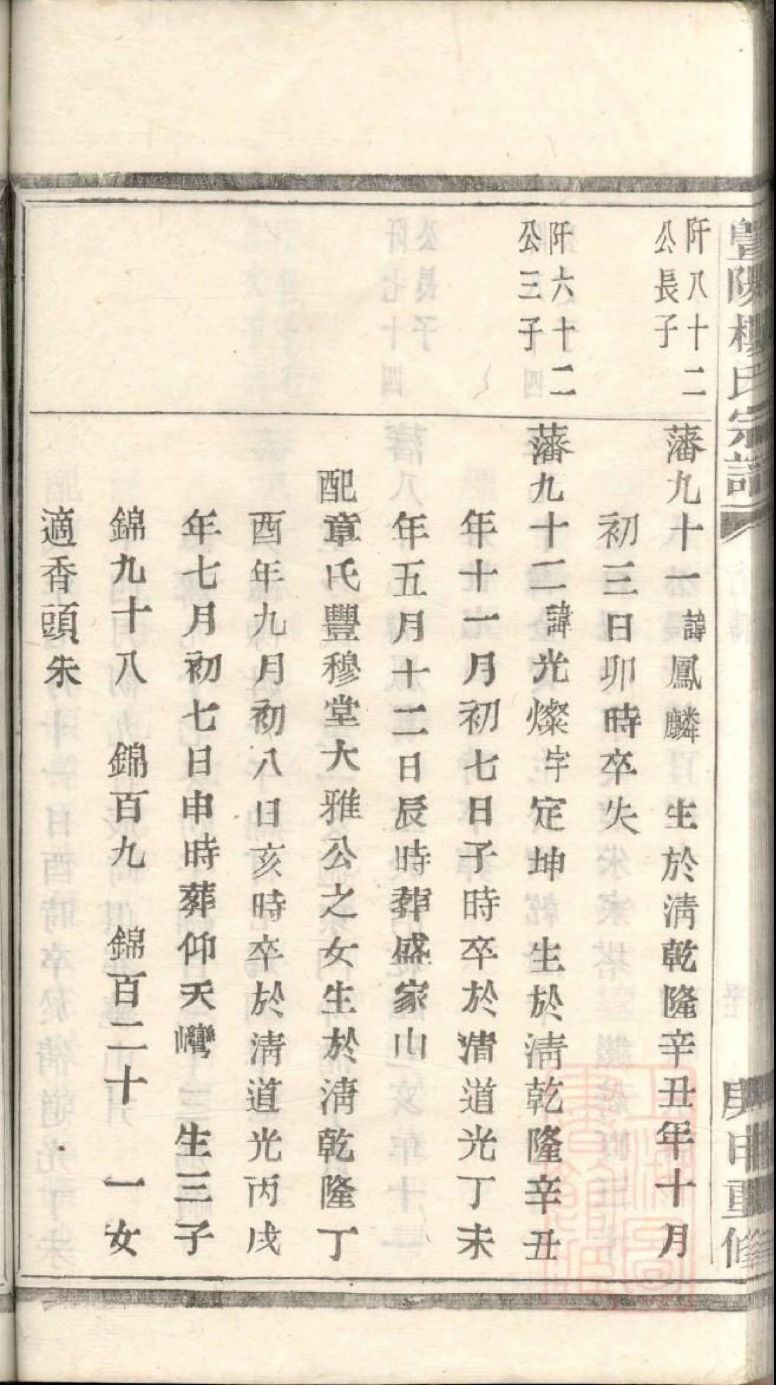 暨陽樓氏宗譜
庚申重修
阡八十二
公長子
藩九十一諱鳳麟 生於淸乾隆辛丑年十月
初三日卯時卒失
阡六十二
公三子
藩九十二諱光燦字定坤 生於淸乾隆辛丑
年十一月初七日子時卒於淸道光丁未
年五月十二日辰時葬盛家山
配章氏豐穆堂大雅公之女生於淸乾隆丁
酉年九月初八日亥時卒於淸道光丙戌
年七月初七日申時葬仰天灣 生三子
錦九十八 錦百九 錦百二十 一女
適香頭朱